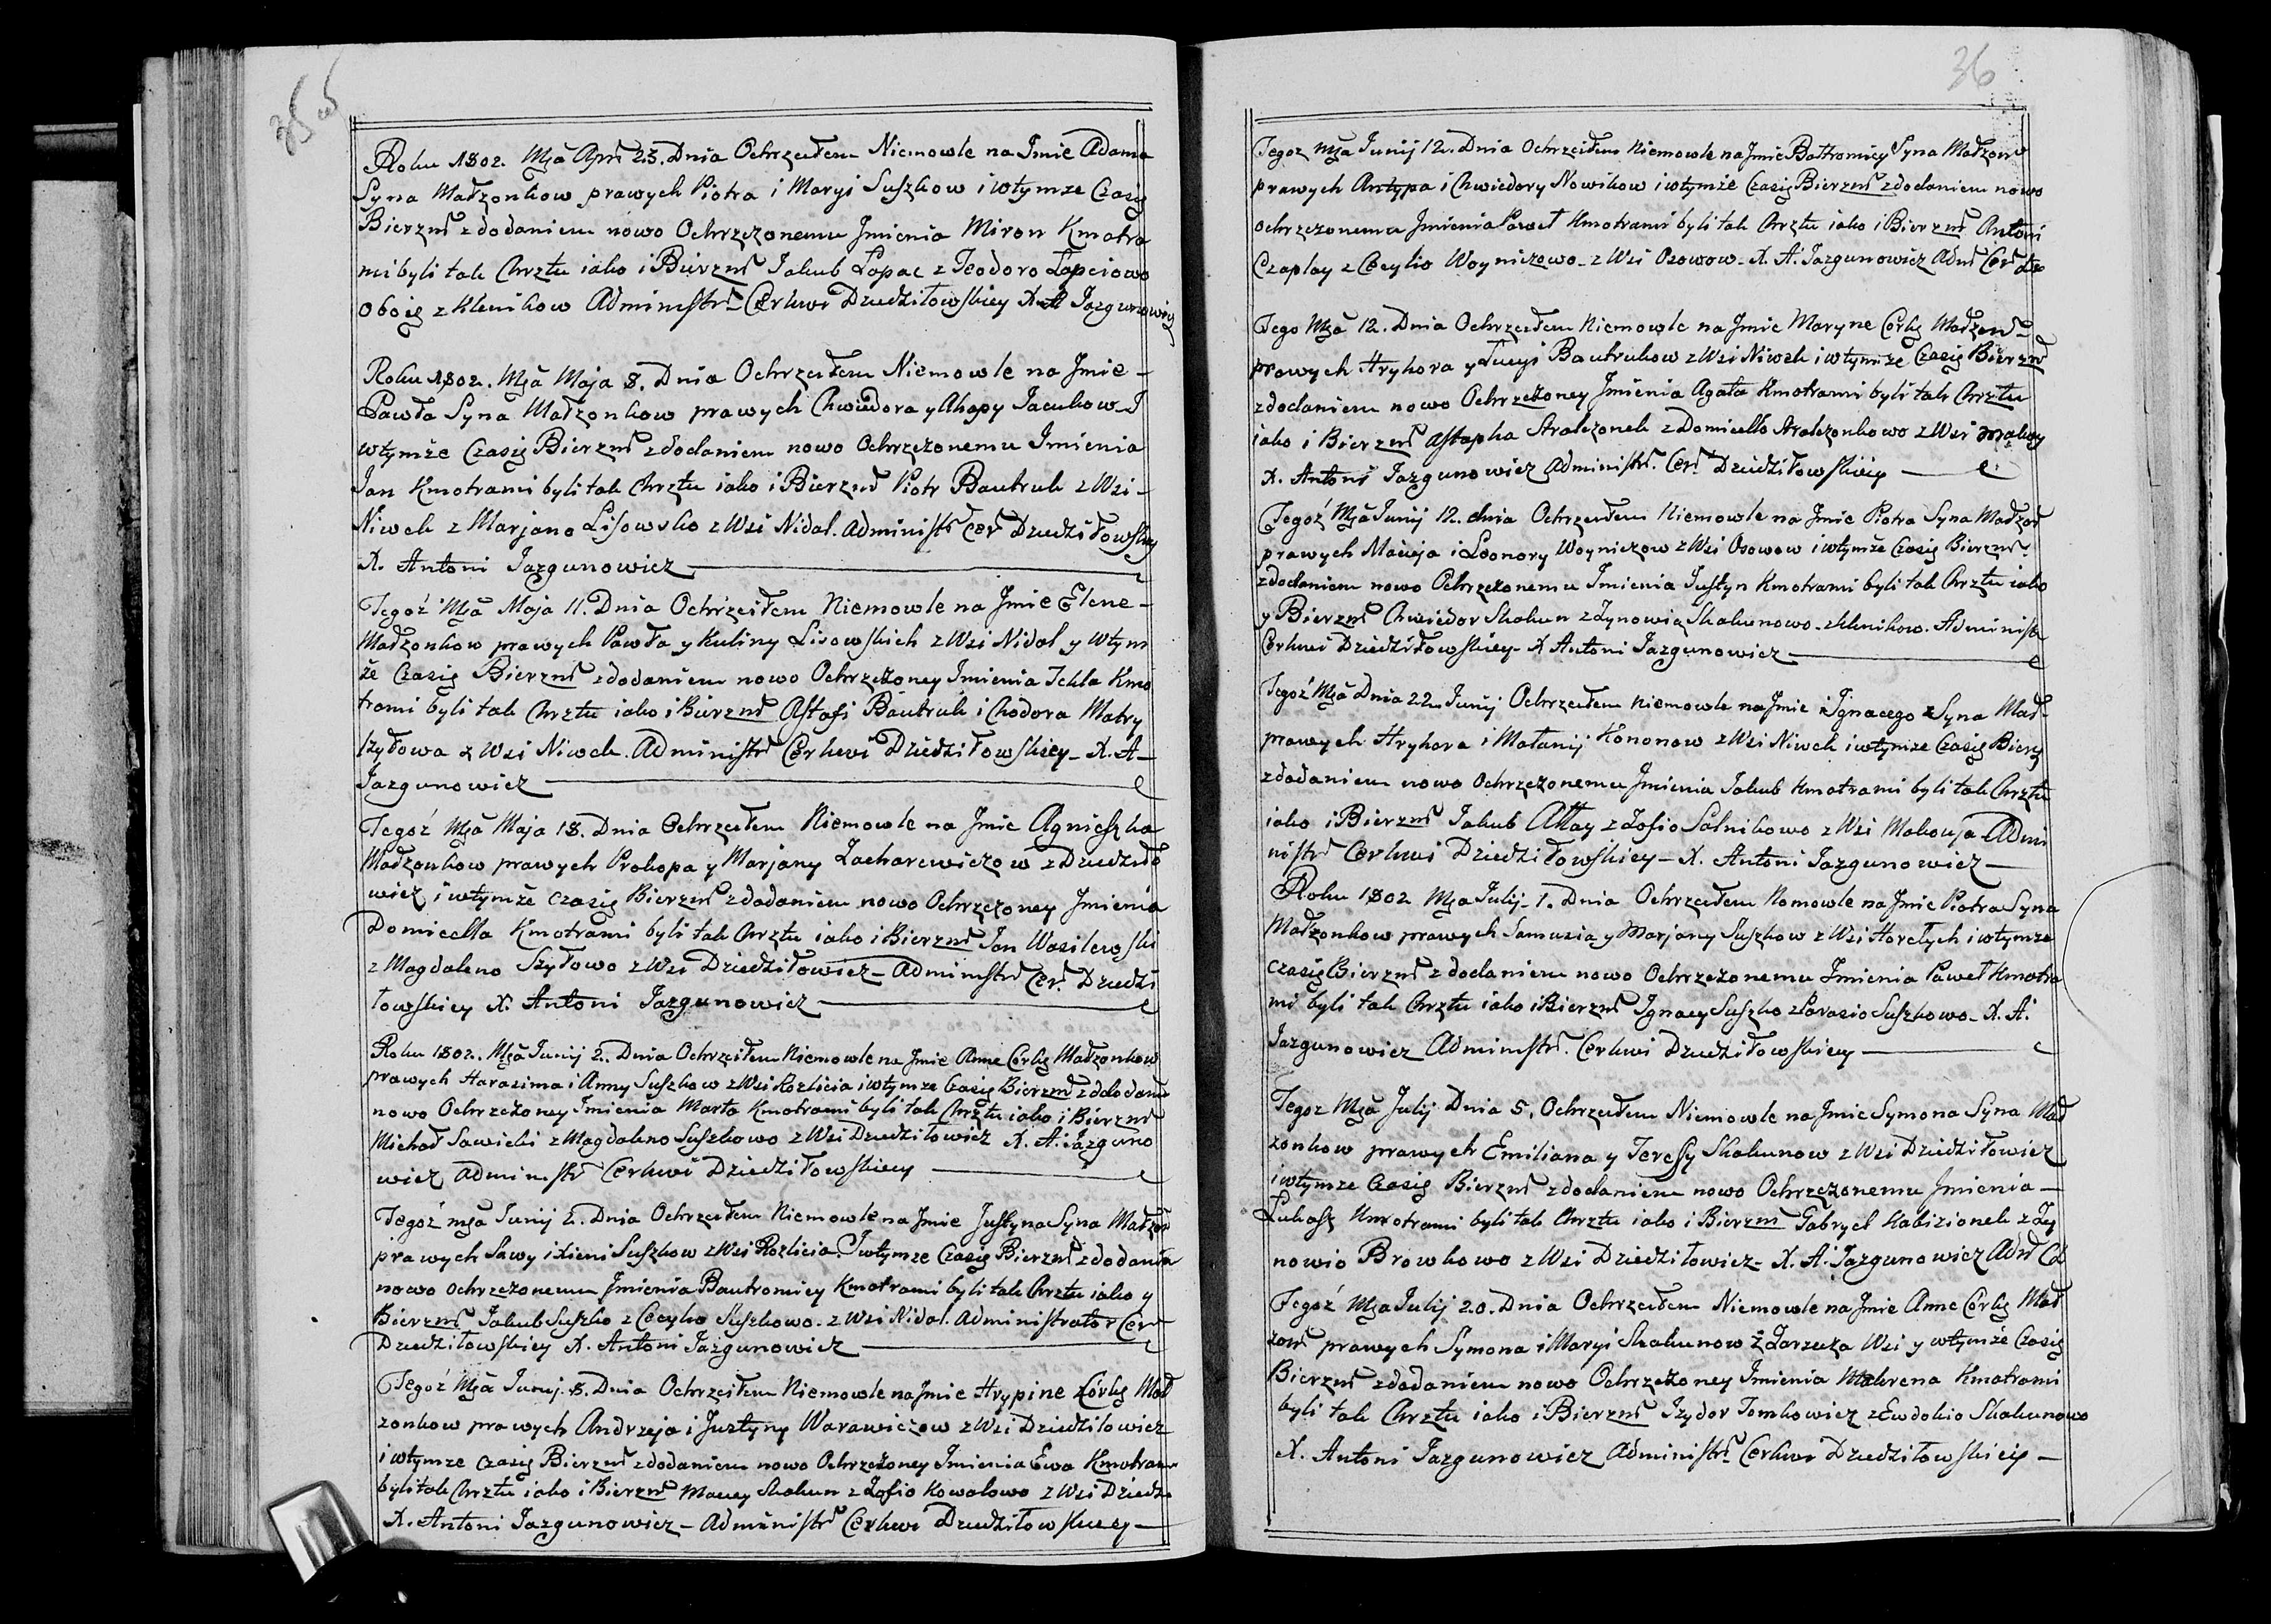 35
Roku 1802. Mça Apr. 23. Dnia Ochrzciłem Niemowle na Jmie Adama
Syna Małzonkow prawych Piotra i Maryi Suszkow i wtymze Czasię
Bierzm. zdodaniem nowo Ochrzczonemu Jmienia Miron Kmotra
mi byli tak Chrztu iako i Bierzm. Jakub Łapac z Teodoro Łapciowo
oboię z Klenikow Administr. Cerkwi Dziedziłowskiey X. A Jazgunowicz
Roku 1802. Mça Maja 8. Dnia Ochrzciłem Niemowle na Jmie-
Pawła Syna Małzonkow prawych Chwiedora y Ahapy Jacukow I
wtymże Czasię Bierzm. zdodaniem nowo Ochrzczonemu Jmienia
Jan Kmotrami byli tak Chrztu iako i Bierzm. Piotr Bautruk z Wsi-
Niwek z Marjano Lisowsko z Wsi Nidal. Administr. Cer. Dziedziłowskiey
X. Antoni Jazgunowicz
Tegoż Mça Maja 11. Dnia Ochrzciłem Niemowle na Jmie Elene-
Małzonkow prawych Pawła y Kuliny Lisowskich z Wsi Nidal y wtym
że Czasię Bierzm. zdodaniem nowo Ochrzczoney Jmienia Tekla Kmo
trami byli tak Chrztu iako i Bierzm. Astafi Bautruk i Chodora Matry
szyłowa z Wsi Niwek. Administr. Cerkwi Dziedziłowskiey-X. A-
Jazgunowicz
Tegoż Mça Maja 18. Dnia Ochrzciłem Niemowle na Jmie Agnieszka
Małzonkow prawych Prokopa y Marjany Zacharewiczow z Dziedziło
wicz i wtymże Czasię Bierzm. zdodaniem nowo Ochrzczoney Jmienia
Domicella Kmotrami byli tak Chrztu iako i Bierzm. Jan Wasilewski
z Magdaleno Szyłowo z Wsi Dziedziłowicz-Administr. Cer. Dziedzi
łowskiey X. Antoni Jazgunowicz
Roku 1802. Mça Junij 2. Dnia Ochrzciłem Niemowle na Jmie Anne Corkę Małzonkow
prawych Harasima i Anny Suszkow z Wsi Rozlicia i wtymze Czasię Bierzm. zdododanie
nowo Ochrzczoney Jmienia Marta Kmotrami byli tak Chrztu iako i Bierzm.
Michał Sawicki z Magdaleno Suszkowo z Wsi Dziedziłowicz X. A. Jazguno
wicz Administr. Cerkwi Dziedziłowskiey
Tegoż mça Junij 2. Dnia Ochrzciłem Niemowle na Jmie Justyna Syna Małzon
prawych Sawy i Xieni Suszkow z Wsi Rozlicia. I wtymze Czasię Bierzm. zdodania
nowo ochrzczonemu Jmienia Bautromiey Kmotrami byli tak Chrztu iako y
Bierzm. Jakub Suszko z Cecylio Suszkowo. z Wsi Nidal. Administrator Cer
Dziedziłowskiey X. Antoni Jazgunowicz
Tegoż Mça Junij. 8. Dnia Ochrzciłem Niemowle na Jmie Hrypine Córkę Mał
zonkow prawych Andrzeja i Justyny Warawiczow z Wsi Dziedziłowicz
i wtymze Czasię Bierzm. zdodaniem nowo Ochrzczoney Jmienia Ewa Kmotram
byli tak Chrztu iako i Bierzm. Maciey Skakun z Zofio Kowalowo z Wsi Dziedzi
X. Antoni Jazgunowicz-Administr. Cerkwi Dziedziłowskiey-
36
Tegoz Mça Junij 12. Dnia Ochrzciłem Niemowle na Jmie Bałtromiey Syna Małzon
prawych Antypa i Chwiedory Nowikow i wtymże Czasię Bierzm. zdodaniem nowo
ochrzczonemu Jmienia Paweł Kmotrami byli tak Chrztu iako i Bierzm. Antoni
Czaplay z Cecylio Woyniczowo-z Wsi Osowow-X. A. Jazgunowicz Adm. Cer.
Tego Mça 12. Dnia Ochrzciłem Niemowle na Jmie Maryne Corkę Małzon
prawych Hryhora y Łucyi Bautrukow z Wsi Niwek i wtymze Czasię Bierzm.
zdodaniem nowo Ochrzczoney Jmienia Agata Kmotrami byli tak Chrztu
iako i Bierzm. Astapka Strałczonek z Domicello Strałczonkowo z Wsi
X. Antoni Jazgunowicz Administr. Cer. Dziedziłowskiey
Tegoż Mça Junij 12. dnia Ochrzciłem Niemowle na Jmie Piotra Syna Małzon
prawych Macieja i Leonory Woyniczow z Wsi Osowow i wtymże Czasię Bierzm.
zdodaniem nowo Ochrzczonemu Jmienia Justyn Kmotrami byli tak Chrztu iako
y Bierzm. Chwiedor Skakun z Zynowią Skakunowo-z Klenikow. Administr
Cerkwi Dziedziłowskiey-X Antoni Jazgunowicz
Tegoż Mça Dnia 22. Junij Ochrzciłem Niemowle na Jmie Jgnacego Syna Mał-
prawych Hryhora i Matanij Kononow z Wsi Niwek i wtymze Czasię Bierz
zdodaniem nowo Ochrzczonemu Jmienia Jakub Kmotrami byli tak Chrztu
iako i Bierzm. Jakub Ałłay z Zofio Salnikowo z Wsi Mokowja-Admi
nistr. Cerkwi Dziedziłowskiey-X. Antoni Jazgunowicz-
Roku 1802 Mça Julij-1. Dnia Ochrzciłem Nomowle na Jmie Piotra Syna
Małzonkow prawych Samusia y Marjany Suszkow z Wsi Horełych i wtymze
czasię Bierzm. zdodaniem nowo Ochrzczonemu Jmienia Paweł Kmotra
mi byli tak Chrztu iako i Bierzm. Jgnacy Suszko z Parasio Suszkowo-X. A.
Jazgunowicz Administr. Cerkwi Dziedziłowskiey
Tegoz Mça Julij Dnia 5. Ochrzciłem Niemowle na Jmie Symona Syna Mał
zonkow prawych Emiliana y Teressy Skakunow z Wsi Dziedziłowicz
i wtymze Czasię Bierzm. zdodaniem nowo Ochrzczonemu Jmienia-
Łukasz Kmotrami byli tak Chrztu iako i Bierzm. Gabryel Kabizionek z Zy
nowio Browkowo z Wsi Dziedziłowicz-X. A. Jazgunowicz Adm. C
Tegoż Mça Julij 20. Dnia Ochrzciłem Niemowle na Jmie Anne Corkę Mał
zon. prawych Symona i Maryi Skakunow z Zarzecza Wsi y wtymże Czasię
Bierzm. zdodaniem nowo Ochrzczoney Jmienia Makrena Kmotrami
byli tak Chrztu iako i Bierzm. Jzydor Tomkowicz z Ewdokio Skakunowo
X. Antoni Jazgunowicz Administr. Cerkwi Dziedziłowskiey-